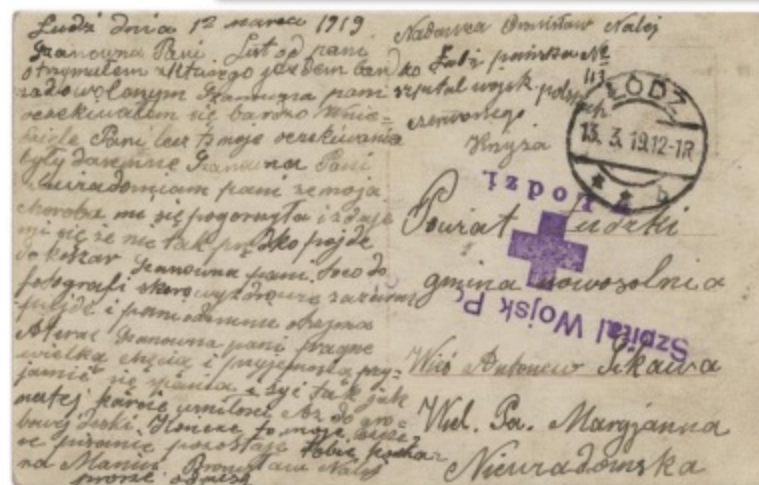 Łudź dnia 12 marca 1919
Szanowna Pani List od pani
otrzymałem z którego jezdem bar
zadowolonym Szanowna pani
oczekiwałem się bardzo w nie=
dziele Pani lecz moje oczekiwania
były daremne Szanowna Pani
zawiadamiam pani ze moja
choroba mi się pogorszyła i zdaje
mi się że nie tak prędko pojde
do koszar Szanowna pani toco do
fotografi skoro wyzdrowie zaraz
pujde i pani odemnie otrzyma
A teraz Szanowna pani pragne
wielką chęcią i przyjemnością przy=
jamić się z pania i żyć tak jak
na tej karcie w miłości Aż do gro=
bowej deski Koncze to moje
pisanie pozostaje Tobie kocha
na Maniu Bronisław Nalej
prosze o odpis
Nadawca Bronisław Nalej
Łódź pańska №
113
szpital wojsk polskich
czerwonego
Kryża
ŁÓDŹ
13. 3. 19.12-1R
* * b
Szpital Wojsk P
w Łodzi.
Powiat Łudzki
gmina nowosolnia
Wieś Antoniew Sikawa
Wiel. Pa. Maryjanna
Niewiadomska